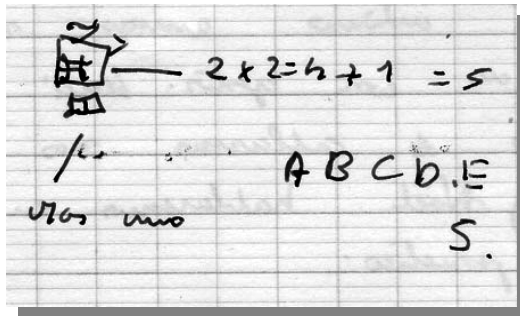 2 x 2 = 4 + 1 = 5
A B C D. E
uno
5.